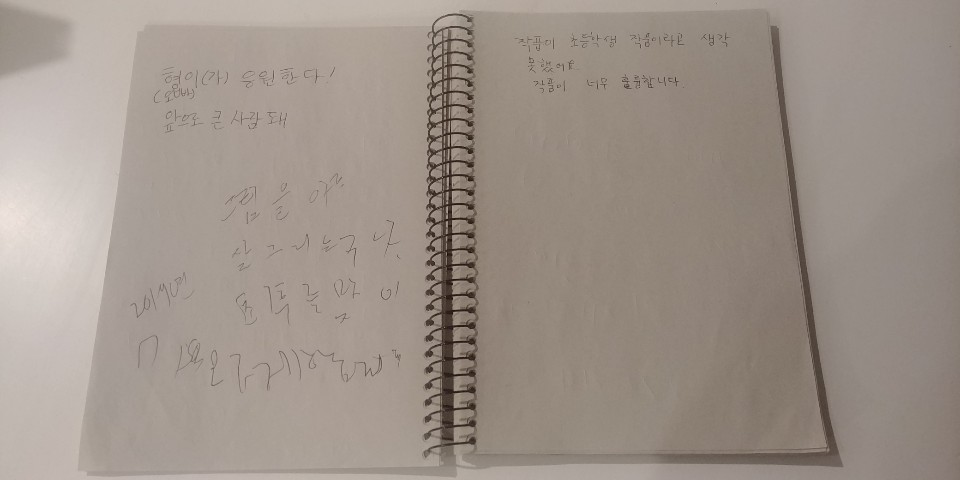 형이(가) 응원한다!
(오빠)
앞으로 큰 사람 돼
그림을 아주
잘 그리는구나
하루를 많이
2019년
작품이 초등학생 작품이라고 생각
못했어요.
작품이 너무 훌륭합니다.